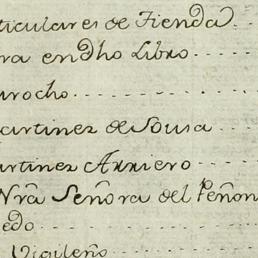 ticulares de Tienda
ra en dho Libro
urocho
artinez de Sousa
artinez Arriero
Nrã Señora del Peñon
edo
Vigileño